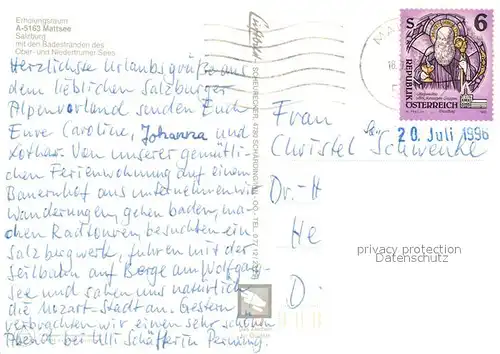 Erholungsraum
A-5163 Mattsee
Salzburg
mit den Badestränden des
Ober- und Niedertrumer Sees
Herzlichste Urlaubsgrüße aus
dem lieblichen Salzburger
Alpenvorland senden Euch
Eure Caroline, Johanna und
Lothar. Von unserer gemütli-
chen Ferienwohnung auf einem
Bauernhof aus unternehmen wir
Wanderungen, gehen baden, ma-
chen Radtouren, besuchten ein
Salzbergwerk, fuhren mit der
Seilbahn auf Berge am Wolfgang-
see und sahen uns natürlich
die Mozart-Stadt an. Gestern
verbrachten wir einen sehr schönen
Abend bei Ulli Schäffer in
S 6
REPUBLIK
ÖSTERREICH
20. Juli 1996
Frau
Christel Schwenke
Dr.-H
He
D-
privacy protection
Datenschutz